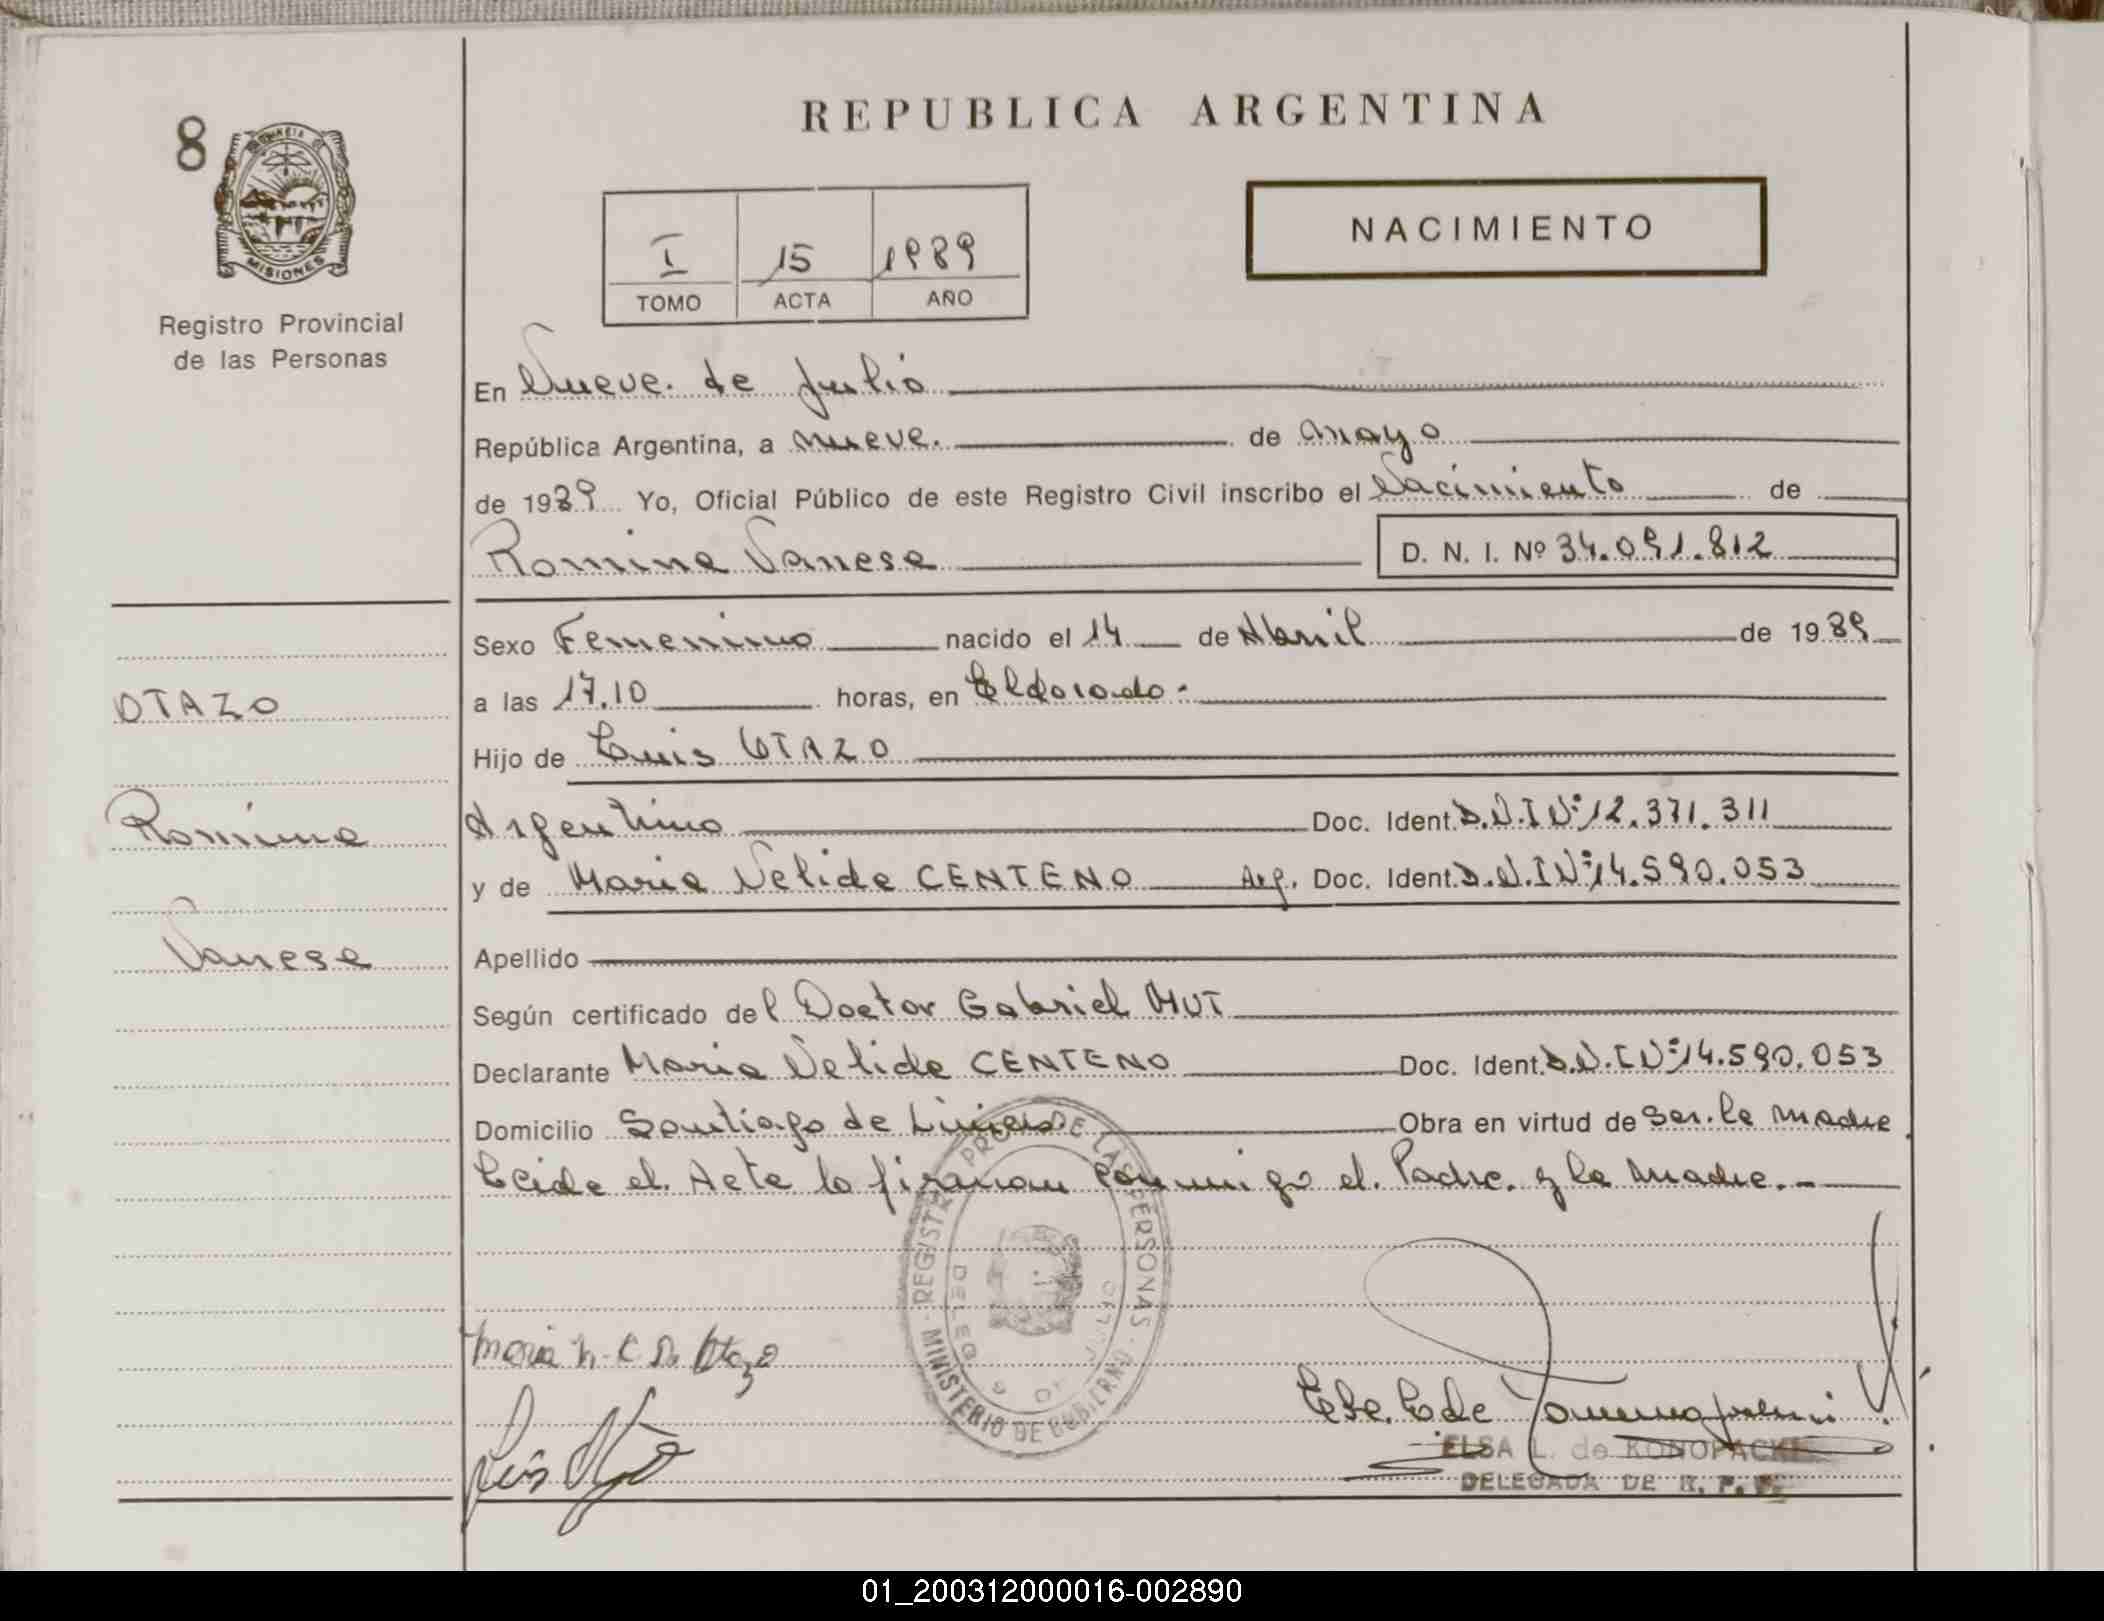 REPUBLICA ARGENTINA
8
PROVINCIA
MISIONES
Registro Provincial
de las Personas
I 15 1989
TOMO ACTA AÑO
NACIMIENTO
En Nueve de Julio
República Argentina, a nueve. de mayo
de 1989 Yo, Oficial Público de este Registro Civil inscribo el Nacimiento de
Romina Vanesa
D. N. I. Nº 34.091.812
Sexo Femenino nacido el 14 de Abril de 1989
a las 17.10 horas, en Eldorado.
Hijo de Luis OTAZO
Argentino Doc. Ident. D.N.I Nº 12.371.311
y de Maria Nelida CENTENO Arg. Doc. Ident. D.N.I Nº 14.590.053
Apellido
Según certificado del Doctor Gabriel HUT
Declarante Maria Nelida CENTENO Doc. Ident. D.N.I Nº 14.590.053
Domicilio Santiago de Liniers Obra en virtud de ser la madre
Leida el Acta la firman conmigo el Padre y la Madre.-
OTAZO
Romina
Vanesa
REGISTRO PROV. DE LAS PERSONAS
MINISTERIO DE GOBIERNO
DELEG. 9 DE JULIO
Maria N. C De Otazo
Luis Otazo
ELSA L. de KONOPACKI
DELEGADA DE R. P. P.
01_200312000016-002890